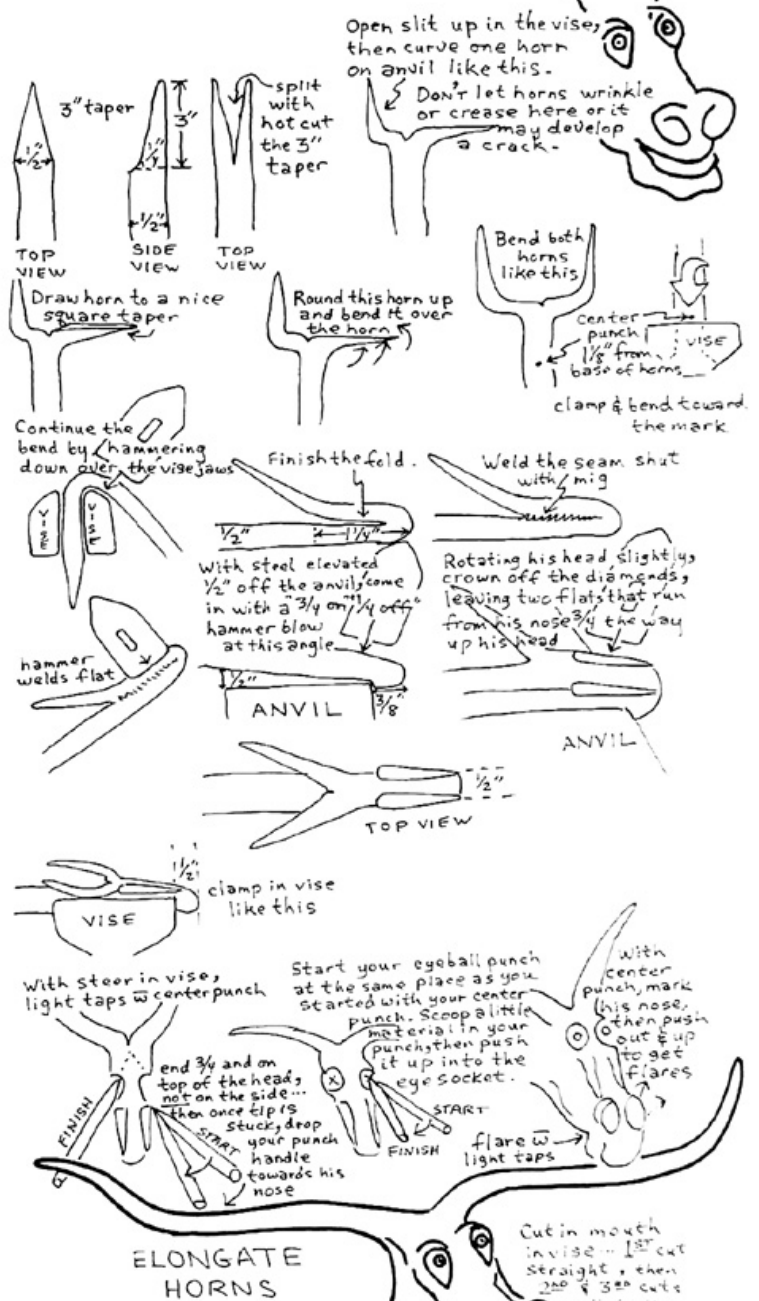 Open slit up in the vise,
then curve one horn
on anvil like this.
Don't let horns wrinkle
or crease here or it
may develop
a crack.
3" taper
1/2"
3"
1/4"
1/2"
split
with
hot cut
the 3"
taper
TOP
VIEW
SIDE
VIEW
TOP
VIEW
Draw horn to a nice
square taper
Round this horn up
and bend it over
the horn
Bend both
horns
like this
center
punch
1 1/8" from
base of horns
VISE
clamp & bend toward
the mark
Continue the
bend by hammering
down over the vise jaws
VISE
VISE
Finish the fold.
1/2"
1 1/4"
Weld the seam shut
with mig
With steel elevated
1/2" off the anvil, come
in with a "3/4 on" "1/4 off"
hammer blow
at this angle
1/2"
ANVIL
3/8"
Rotating his head, slightly,
crown off the diamonds,
leaving two flats that run
from his nose 3/4 the way
up his head
ANVIL
hammer
welds flat
1/2"
TOP VIEW
1/2"
clamp in vise
like this
VISE
With steer in vise,
light taps w̅ center punch
end 3/4 and on
top of the head,
not on the side...
then once tip is
stuck, drop
your punch
handle
towards his
nose
FINISH
START
Start your eyeball punch
at the same place as you
started with your center
punch. Scoop a little
material in your
punch, then push
it up into the
eye socket.
START
FINISH
With
center
punch, mark
his nose,
then push
out & up
to get
flares
flare w̅
light taps
ELONGATE
HORNS
Cut in mouth
in vise... 1ST cut
straight, then
2ND & 3RD cuts